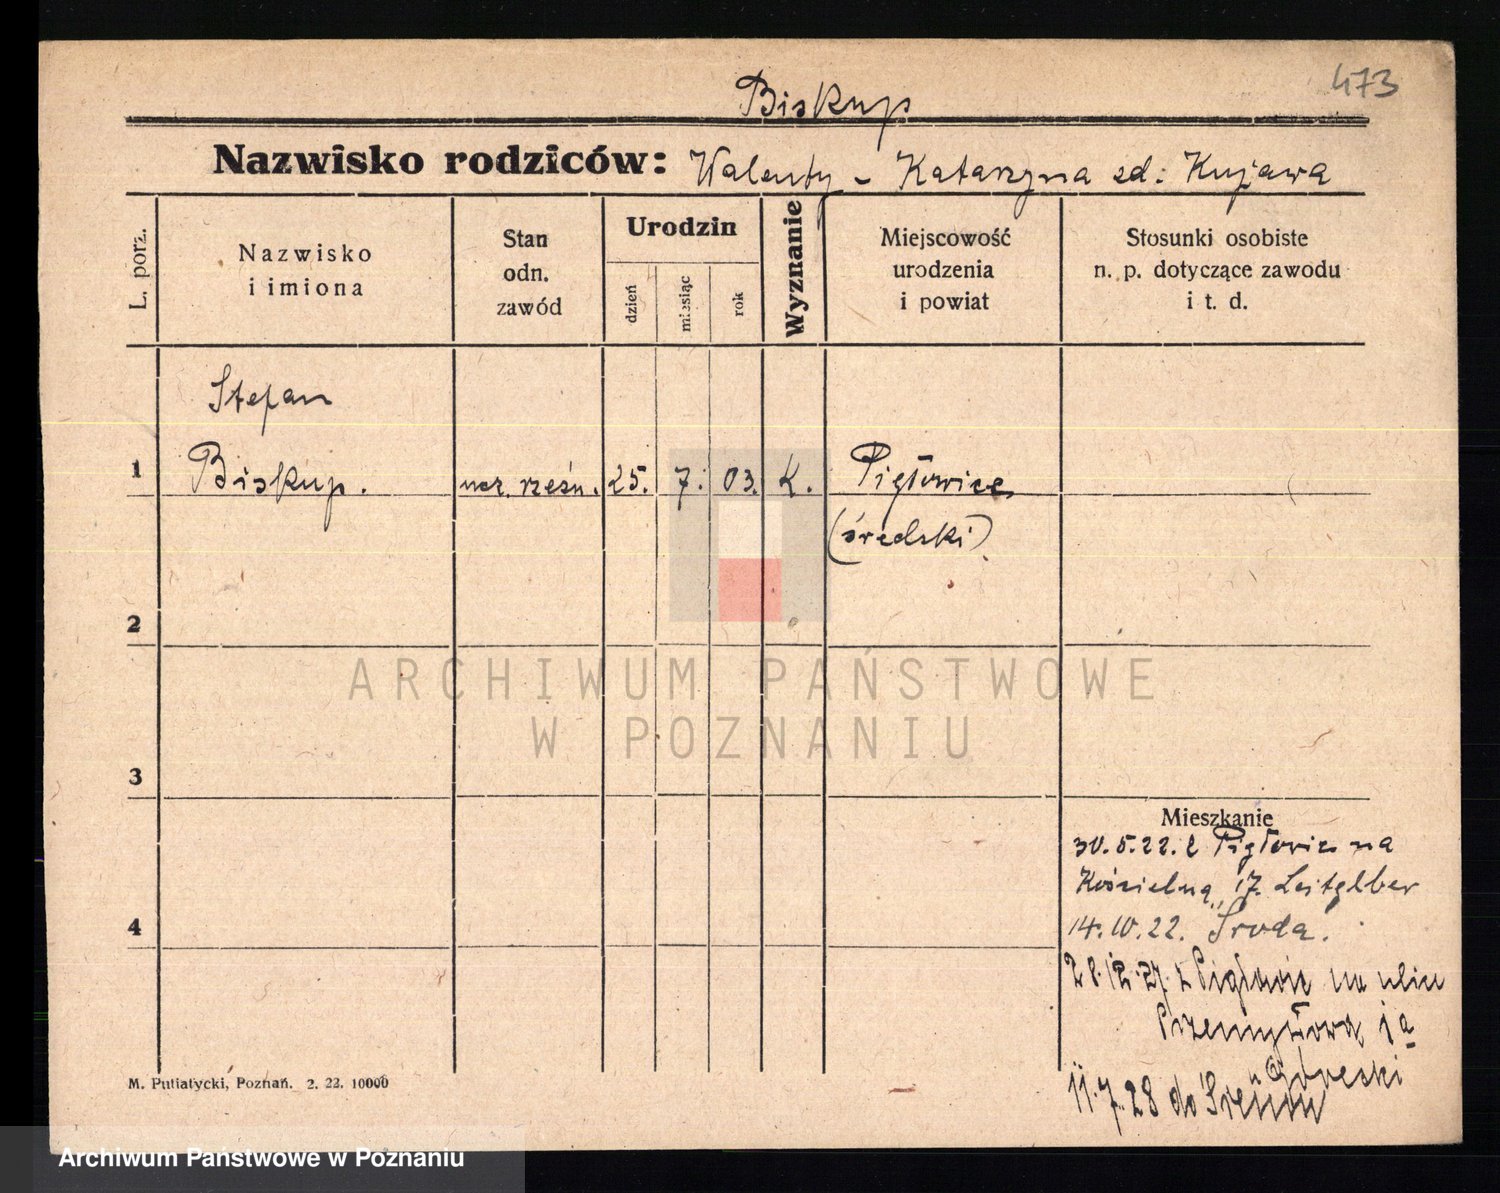 473
Biskup
Nazwisko rodziców: Walenty - Katarzyna zd: Kujawa
L. porz.
Nazwisko
i imiona
Stan
odn.
zawód
Urodzin
dzień
miesiąc
rok
Wyznanie
Miejscowość
urodzenia
i powiat
Stosunki osobiste
n. p. dotyczące zawodu
i t. d.
Stefan
1 Biskup. ucz. rzeźn. 25. 7. 03. K. Pigłowice
(średski)
2
3
4
Mieszkanie
30.5.22. z Pigłowic na
Kościelną 17.
14.10.22. Środa.
28.12.27. z Pigłowic na ulicę
Przemysłową 1a
u Góreski
11.7.28 do Śremu
M. Putiatycki, Poznań. 2. 22. 10000
ARCHIWUM PAŃSTWOWE
W POZNANIU
Archiwum Państwowe w Poznaniu